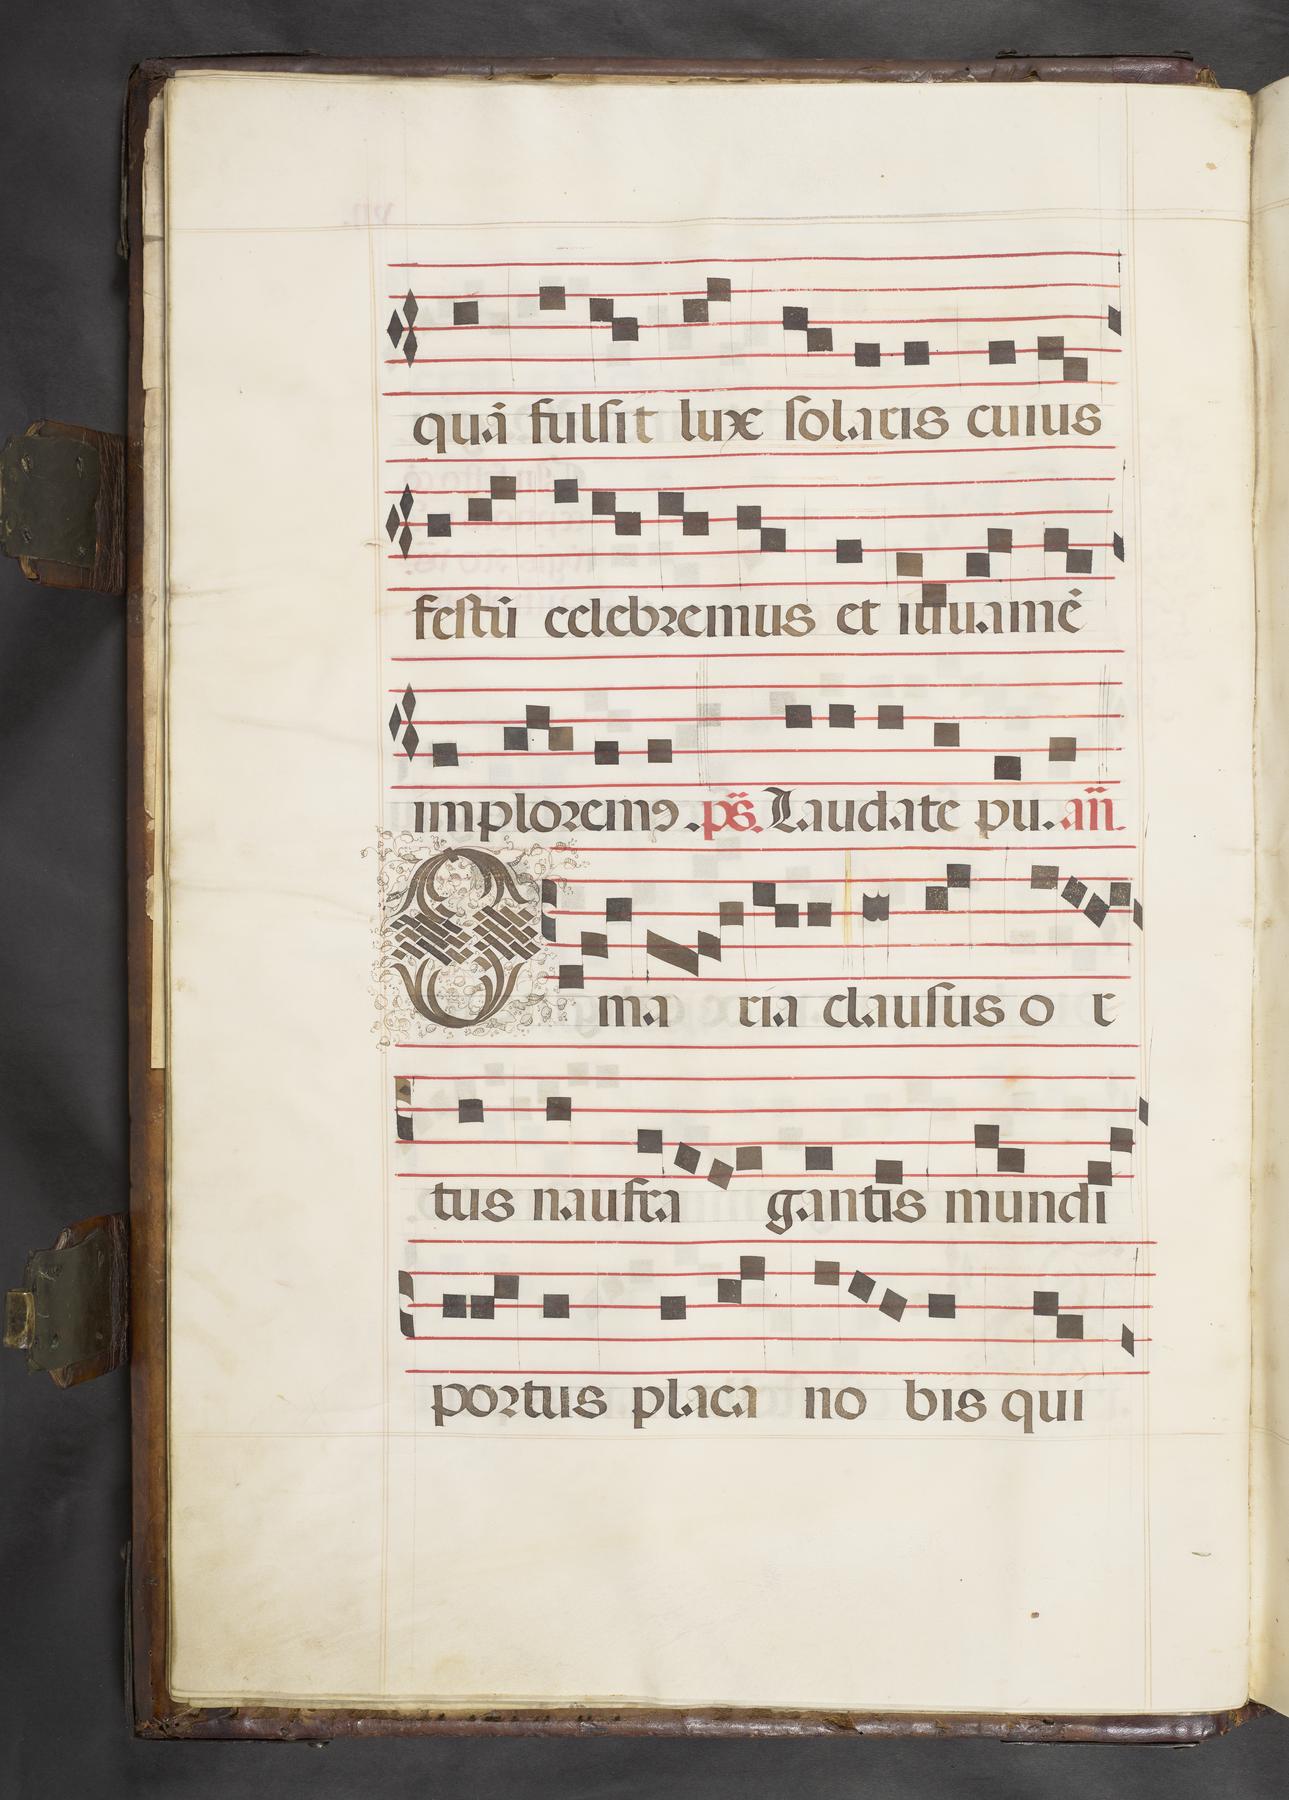 quā fulsit lux solaris cuius
festū celebremus et iuuamē
imploremꝰ. ps̄. Laudate pu. an̄.
O maria clausus or
tus naufra gantis mundi
portus placa no bis qui